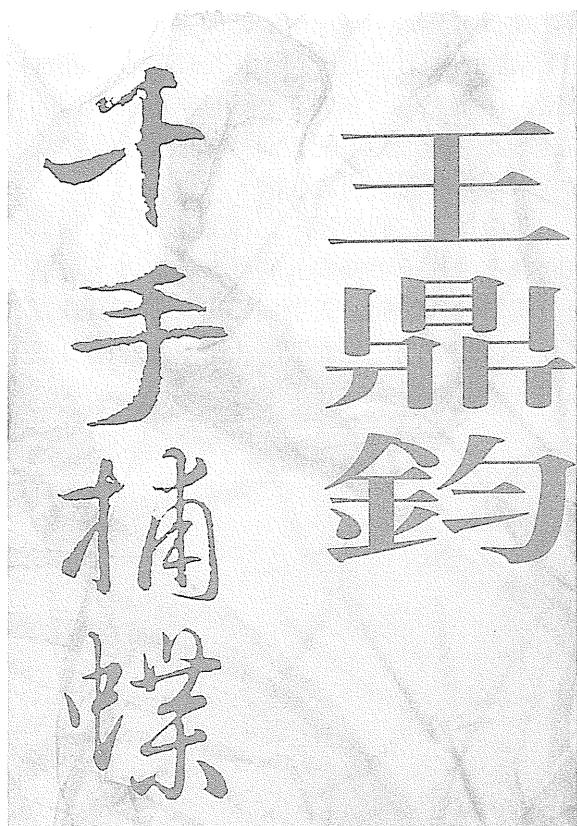 王鼎鈞
千手捕蝶